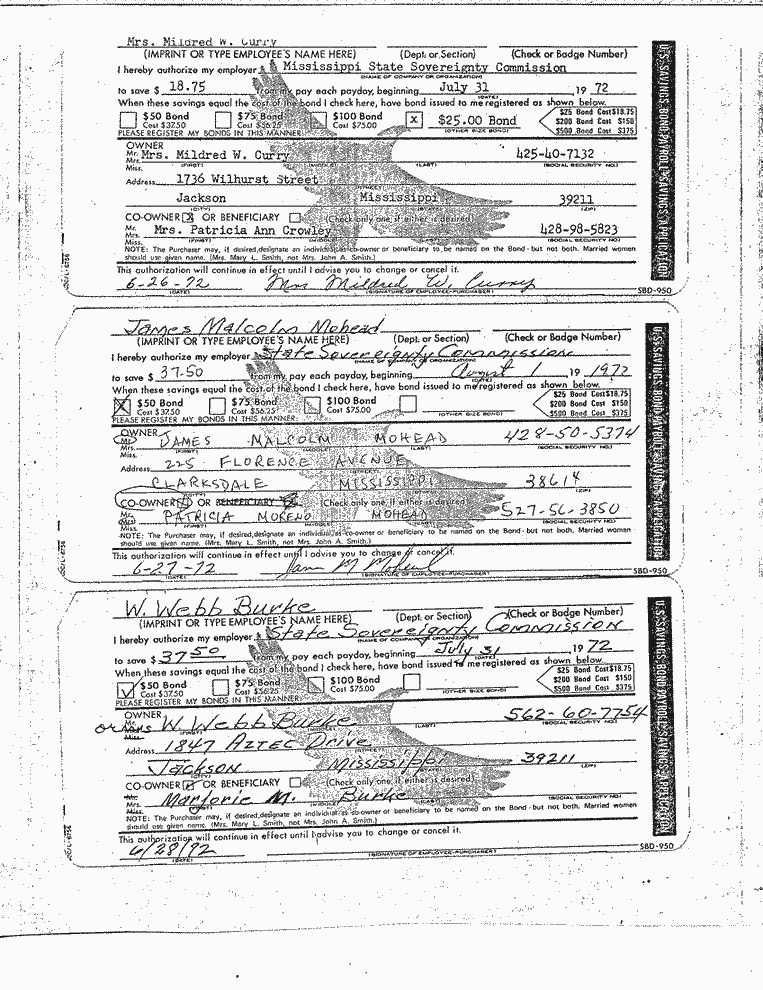 Mrs. Mildred W. Curry
(IMPRINT OR TYPE EMPLOYEE'S NAME HERE) (Dept. or Section) (Check or Badge Number)
I hereby authorize my employer Mississippi State Sovereignty Commission
(NAME OF COMPANY OR ORGANIZATION)
to save $ 18.75 from my pay each payday, beginning July 31 19 72
(DATE)
When these savings equal the cost of the bond I check here, have bond issued to me registered as shown below.
$50 Bond Cost $37.50 $75 Bond Cost $56.25 $100 Bond Cost $75.00 X $25.00 Bond (OTHER SIZE BOND) $25 Bond Cost $18.75 $200 Bond Cost $150 $500 Bond Cost $375
PLEASE REGISTER MY BONDS IN THIS MANNER:
OWNER
Mr. Mrs. Miss. Mrs. Mildred W. Curry 425-40-7132
(FIRST) (LAST) (SOCIAL SECURITY NO.)
Address 1736 Wilhurst Street
(STREET)
Jackson Mississippi 39211
(CITY) (STATE) (ZIP)
CO-OWNER X OR BENEFICIARY (Check only one, if either is desired)
Mr. Mrs. Miss. Mrs. Patricia Ann Crowley 428-98-5823
(FIRST) (MIDDLE) (LAST) (SOCIAL SECURITY NO.)
NOTE: The Purchaser may, if desired, designate an individual as co-owner or beneficiary to be named on the Bond - but not both. Married women
should use given name. (Mrs. Mary L. Smith, not Mrs. John A. Smith.)
This authorization will continue in effect until I advise you to change or cancel it.
6-26-72 Mrs Mildred W. Curry
(DATE) (SIGNATURE OF EMPLOYEE-PURCHASER) SBD-950
U.S. SAVINGS BOND PAYROLL SAVINGS APPLICATION
James Malcolm Mohead
(IMPRINT OR TYPE EMPLOYEE'S NAME HERE) (Dept. or Section) (Check or Badge Number)
I hereby authorize my employer State Sovereignty Commission
(NAME OF COMPANY OR ORGANIZATION)
to save $ 37.50 from my pay each payday, beginning August 1 19 1972
(DATE)
When these savings equal the cost of the bond I check here, have bond issued to me registered as shown below.
X $50 Bond Cost $37.50 $75 Bond Cost $56.25 $100 Bond Cost $75.00 (OTHER SIZE BOND) $25 Bond Cost $18.75 $200 Bond Cost $150 $500 Bond Cost $375
PLEASE REGISTER MY BONDS IN THIS MANNER:
OWNER
Mr. Mrs. Miss. JAMES MALCOLM MOHEAD 428-50-5374
(FIRST) (LAST) (SOCIAL SECURITY NO.)
Address 225 FLORENCE AVENUE
(STREET)
CLARKSDALE MISSISSIPPI 38614
(CITY) (STATE) (ZIP)
CO-OWNER OR BENEFICIARY (Check only one, if either is desired)
Mr. Mrs. Miss. PATRICIA MORENO MOHEAD 527-56-3850
(FIRST) (MIDDLE) (LAST) (SOCIAL SECURITY NO.)
NOTE: The Purchaser may, if desired, designate an individual as co-owner or beneficiary to be named on the Bond - but not both. Married women
should use given name. (Mrs. Mary L. Smith, not Mrs. John A. Smith.)
This authorization will continue in effect until I advise you to change or cancel it.
6-27-72 James M Mohead
(DATE) (SIGNATURE OF EMPLOYEE-PURCHASER) SBD-950
U.S. SAVINGS BOND PAYROLL SAVINGS APPLICATION
W. Webb Burke
(IMPRINT OR TYPE EMPLOYEE'S NAME HERE) (Dept. or Section) (Check or Badge Number)
I hereby authorize my employer State Sovereignty Commission
(NAME OF COMPANY OR ORGANIZATION)
to save $ 37 50 from my pay each payday, beginning July 31 19 72
(DATE)
When these savings equal the cost of the bond I check here, have bond issued to me registered as shown below.
$50 Bond Cost $37.50 $75 Bond Cost $56.25 $100 Bond Cost $75.00 (OTHER SIZE BOND) $25 Bond Cost $18.75 $200 Bond Cost $150 $500 Bond Cost $375
PLEASE REGISTER MY BONDS IN THIS MANNER:
OWNER
W. Webb Burke 562-60-7754
(FIRST) (LAST) (SOCIAL SECURITY NO.)
Address 1847 Aztec Drive
Jackson Mississippi 39211
(CITY) (STATE) (ZIP)
CO-OWNER OR BENEFICIARY (Check only one, if either is desired)
Mr. Mrs. Miss. Marjorie M. Burke
(FIRST) (MIDDLE) (LAST) (SOCIAL SECURITY NO.)
NOTE: The Purchaser may, if desired, designate an individual as co-owner or beneficiary to be named on the Bond - but not both. Married women
should use given name. (Mrs. Mary L. Smith, not Mrs. John A. Smith.)
This authorization will continue in effect until I advise you to change or cancel it.
6/28/72
(DATE) (SIGNATURE OF EMPLOYEE-PURCHASER) SBD-950
U.S. SAVINGS BOND PAYROLL SAVINGS APPLICATION